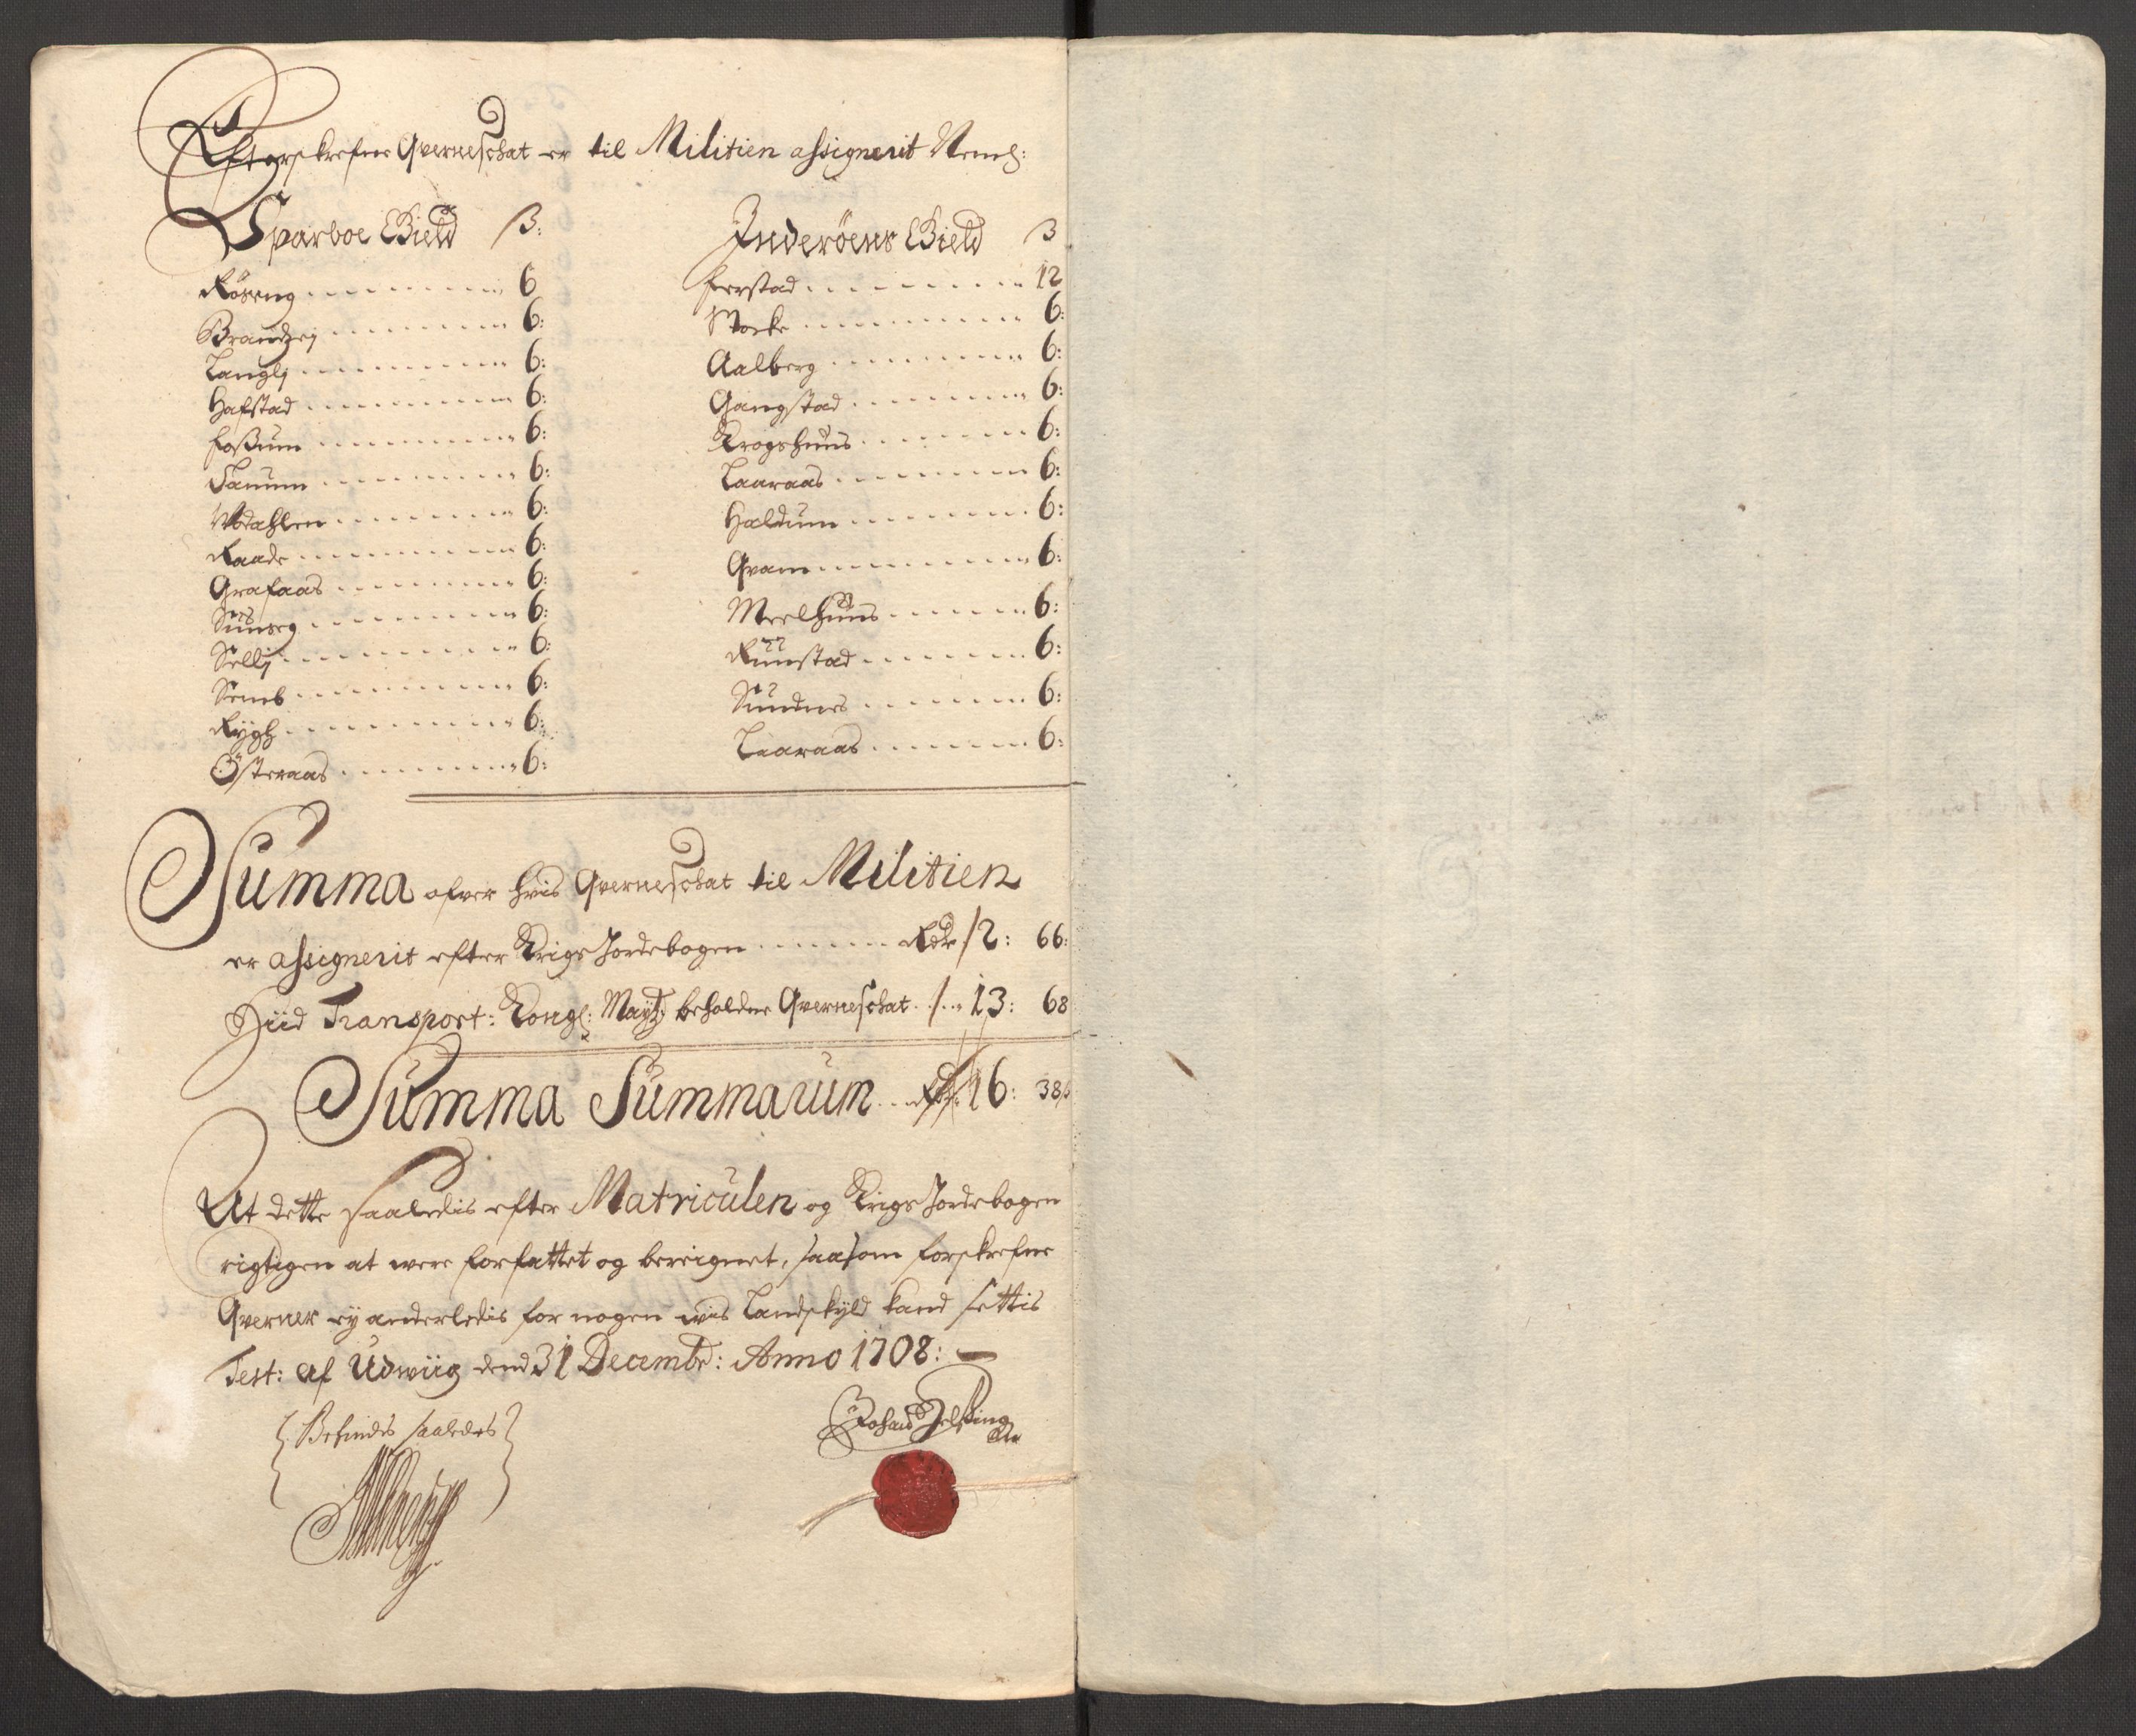 Efterskrefne Qverneschat er til Militien assignerit Neml:
Sparboe Gield ß:
Røseng 6
Brandzej 6:
Langlj 6:
Hafstad 6:
Foßum 6:
Sanum 6:
Wodahlen 6:
Raade 6:
Grafaas 6:
6:
Sellj 6:
Semb 6:
Rygh 6:
Østeraas 6:
Inderöens Gield ß
Ferstad 12
Storke 6:
Aalberg 6:
Gangstad 6:
Krogshuus 6:
Laaraas 6:
Haldum 6:
Qvam 6:
Meelhuus 6:
Ruustad 6:
Sundnes 6:
Laaraas 6:
Summa ofver hvis Qverneschat til Militien
er assignerit efter Krigs Jordebogen Rdr 2: 66:
Hiid Transport: Kongl: Mayts beholdne Qverneschat 13: 68
Summa Summarum Rdr 16: 38
At dette saaledis efter Matriculen og Krigs Jordebogen
rigtigen at were forfattet og bereignet, saasom forskrefne
Qverner ej anderledis for nogen wis Landskyld kand settis
Test: af Udwiig dend 31 Decembr: Anno 1708:
Befindes saaledes
Johan